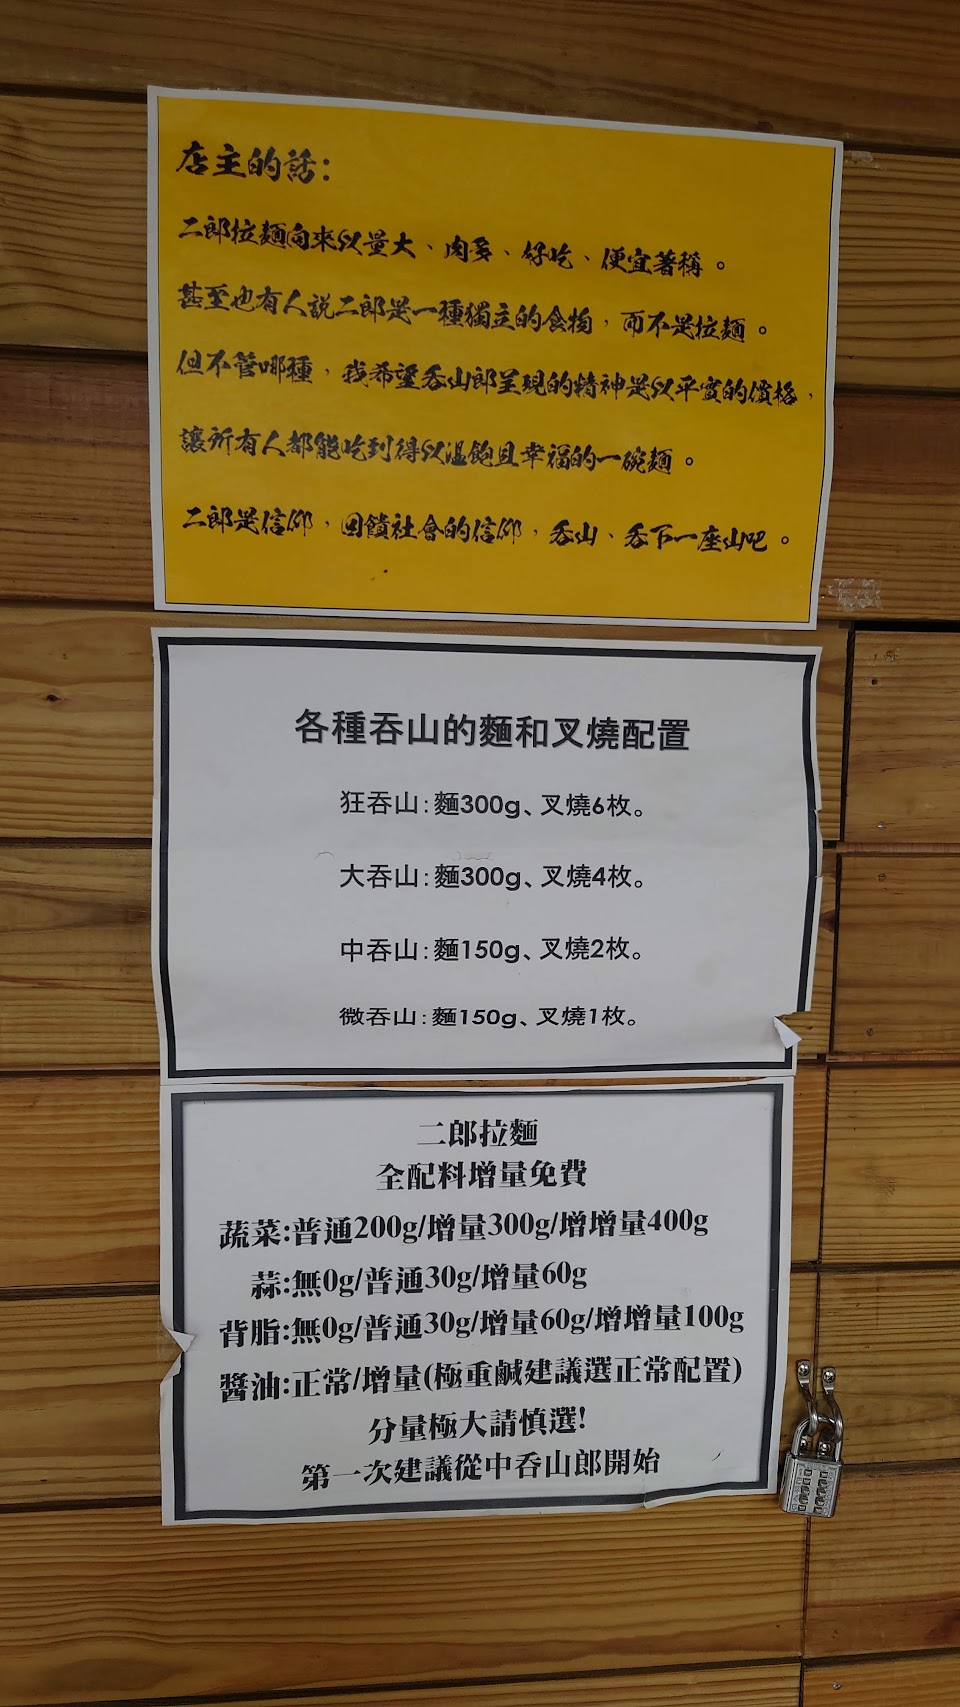 店主的話:
二郎拉麵向來以量大、肉多、好吃、便宜著稱。
甚至也有人說二郎是一種獨立的食物,而不是拉麵。
但不管哪種,我希望吞山郎呈現的精神是以平實的價格,
讓所有人都能吃到得以溫飽且幸福的一碗麵。
二郎是信仰,回饋社會的信仰,吞山、吞下一座山吧。
各種吞山的麵和叉燒配置
狂吞山:麵300g、叉燒6枚。
大吞山:麵300g、叉燒4枚。
中吞山:麵150g、叉燒2枚。
微吞山:麵150g、叉燒1枚。
二郎拉麵
全配料增量免費
蔬菜:普通200g/增量300g/增增量400g
蒜:無0g/普通30g/增量60g
背脂:無0g/普通30g/增量60g/增增量100g
醬油:正常/增量(極重鹹建議選正常配置)
分量極大請慎選!
第一次建議從中吞山郎開始